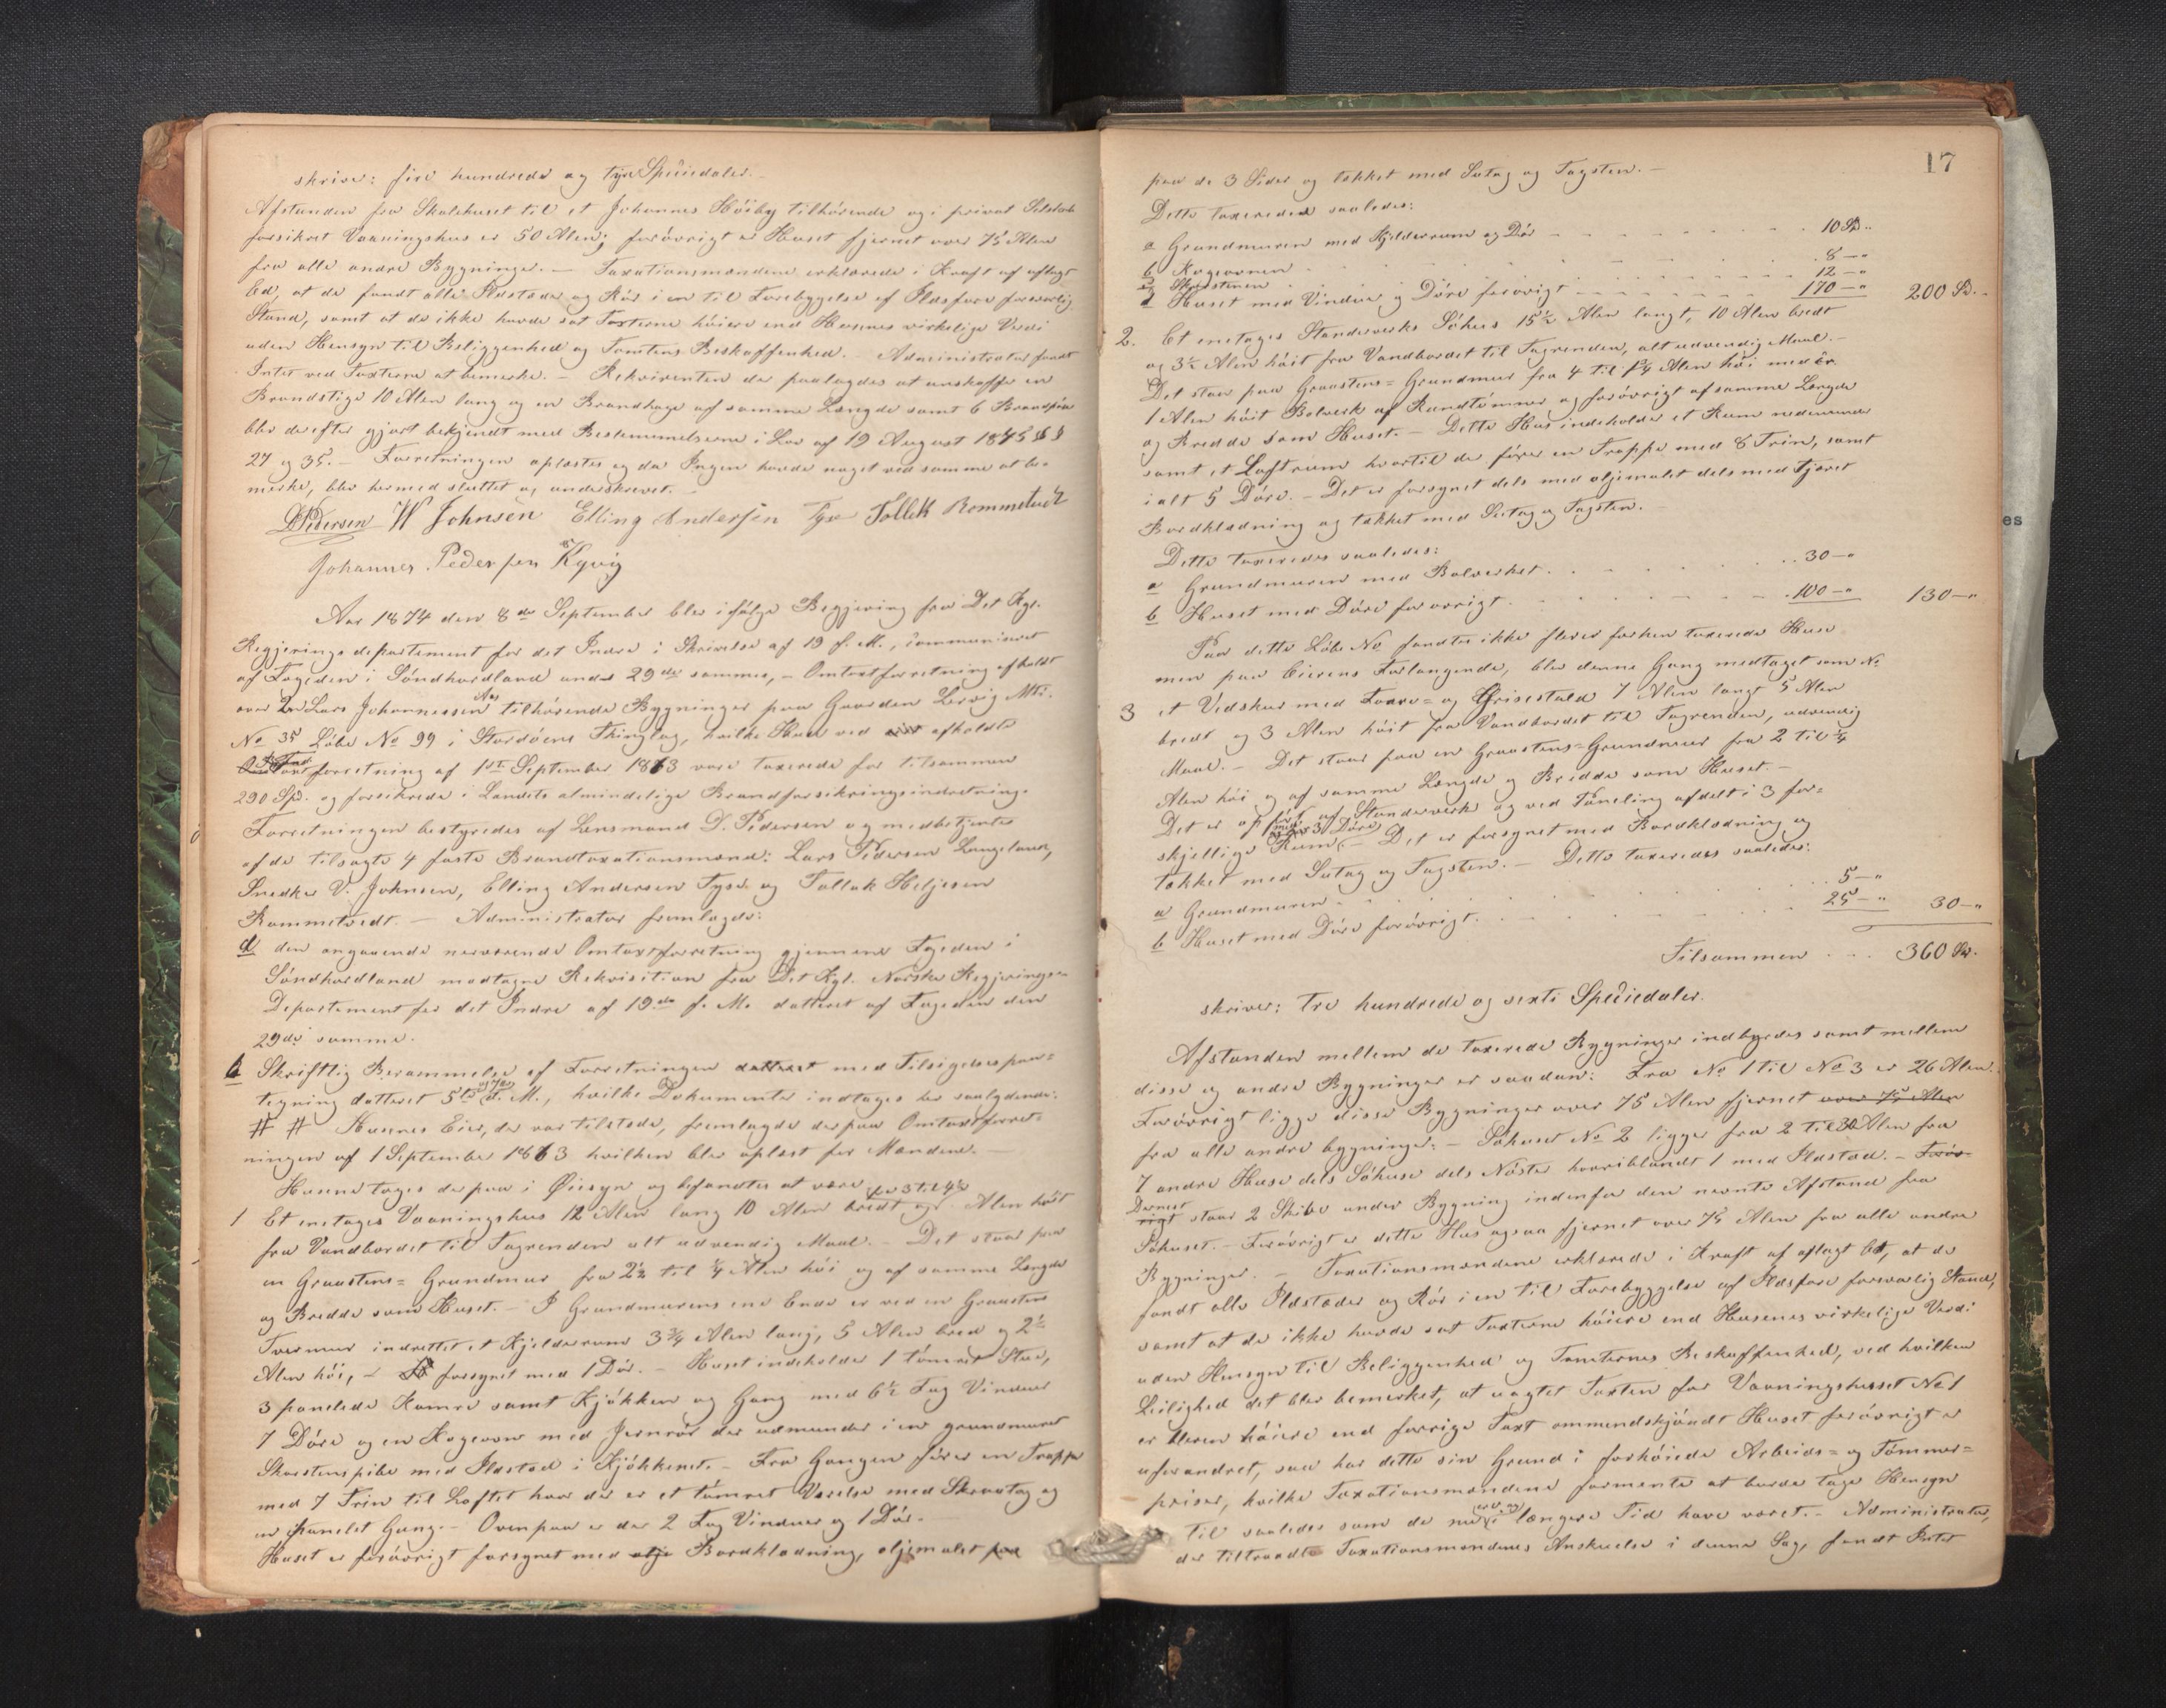 skriver: fire hundrede og tyve Speciedaler.
Afstanden fra Skolehuset til et Johannes Höiby tilhörende og i privat Selskab
forsikret Vaaningshus er 50 Alen; foróvrigt er Huset fjernet over 75 Alen
fra alle andre Bygninger. – Taxationsmændene erklærede i Kraft af aflagt
Ed, at de fandt alle Ildsteder og Rör i en til Forebyggelse af Ildsfare forsvarlig
Stand, samt at de ikke havde sat Taxterne höiere end Husenes virkelige Verdi
uden Hensyn til Beliggenhed og Tomtens Beskaffenhed. – Administrator fandt
Intet ved Taxterne at bemerke. – Rekvirenten der paalagdes at anskaffe en
Brandstige 10 Alen lang og en Brandhage af samme Længde samt 6 Brandspän
blev derefter gjort bekjendt med Bestemmelserne i Lov af 19 August 1845 §§
27 og 35. – Forretningen oplæstes og da Ingen havde noget ved samme at be-
merke, blev hermed sluttet og underskrevet. –
D. Pedersen W Johnsen Elling Andersen Tyse Tollek Rommetvedt
Johannes Pedersen Kyvig
Aar 1874 den 8de September blev ifölge Begjering fra Det Kgl.
Regjerings departement for det Indre i Skrivelse af 19 f. M., communiceret
af Fogeden i Söndhordland under 29de sammes, – Omtaxtforretning afholdt
over Lars Johannessen Aas tilhörende Bygninger paa Gaarden Lervig Mtr.
No 35 Löbe No 99 i Stordöens Thinglag, hvilke Huse ved afholdte
forretning af 1ste September 1863 vare taxerede for tilsammen
290 Spd. og forsikrede i Landets almindelige Brandforsikringsindretning.
Forretningen bestyredes af Lensmand D. Pedersen og medbetjentes
af de tilsagte 4 faste Brandtaxationsmænd: Lars Pedersen Langeland,
Snedker V. Johnsen, Elling Andersen Tyse og Tollak Heljesen
Rommetvedt. – Administrator fremlagde:
a den angaaende nerværende Omtaxtforretning gjennem Fogeden i
Söndhordland modtagne Rekvisition fra Det Kgl. Norske Regjerings-
Departement for det Indre af 19de f. M. datteret af Fogeden den
29de samme.
b Skriftlig Berammelse af Forretningen datteret med Tilsigelsespaa-
tegning datteret 5te og 7de d. M., hvilke Dokumenter indtages her saalydende:
# # Husenes Eier, der var tilstede, fremlagde derpaa Omtaxtforret-
ningen af 1 September 1863 hvilken blev oplæst for Mændene. –
Husene toges derpaa i Öiesyn og befandtes at være
1 Et enetages Vaaningshus 12 Alen lang 10 Alen bredt og fra 3 til 4½ Alen höit
fra Vandbordet til Tagrenden alt udvendig Maal. – Det staar paa
en Graastens= Grundmur fra 2½ til ¼ Alen höi og af samme Længde
og Bredde som Huset. – I Grundmurens ene Ende er ved en Graastens
Tvermur indrettet et Kjelderrum 3¾ Alen lang, 5 Alen bred og 2½
Alen höi, forsynet med 1 Dör. – Huset indeholder 1 tömret Stue,
3 panelede Kamre samt Kjökken og Gang med 6½ Fag Vinduer
7 Döre og en Kogeovn med Jernrör der udmunder i en grundmuret
Skorstenspibe med Ildsted i Kjökkenet. – Fra Gangen förer en Trappe
med 7 Trin til Loftet hvor der er et tömret Værelse med Skraatag og
en panelet Gang. – Ovenpaa er der 2 Fag Vinduer og 1 Dör. –
Huset er foróvrigt forsynet med olje Bordklædning, oljemalet paa
17
paa de 3 Sider og tækket med Sutag og Tagsten. –
Dette taxeredes saaledes:
a Grundmuren med Kjelderrum og Dör 10 Sp. "
b Kogeovnen 8 – "
c Skorstenen 12 – "
d Huset med Vinduer og Döre forövrigt 170 – " 200 Sp. –
2. Et enetages Standerverks Söhus 15½ Alen langt, 10 Alen bredt
og 3½ Alen höit fra Vandbordet til Tagrenden, alt udvendig Maal. –
Det staar paa Graastens= Grundmur fra 4 til 1¾ Alen höi med en
1 Alen höit Bolverk af Rundtömmer og forövrigt af samme Længde
og Bredde som Huset. – Dette Hus indeholder et Rum nedenunder
samt et Loftrum hvortil der förer en Trappe med 8 Trin, samt
ialt 5 Döre. – Det er forsynet dels med oljemalet dels med tjæret
Bordklædning og tækket med Sutag og Tagsten. –
Dette taxeredes saaledes:
a Grundmuren med Bolverket 30 – "
b Huset med Döre forövrigt 100 – " 130 – "
Paa dette Löbe No fandtes ikke flere forhen taxerede Huse
men paa Eierens Forlangende, blev denne Gang medtaget som No
3 et Vedskur med Faare= og Grisestald 7 Alen langt 5 Alen
bredt og 3 Alen höit fra Vandbordet til Tagrenden, udvendig
Maal. – Det staar paa en Graastens= Grundmur fra 2 til ¼
Alen höi og af samme Længde og Bredde som Huset. –
Det er opfört af Standerverk og ved Paneling afdelt i 3 for=
skjellige Rum med 3 Döre. – Det er forsynet med Bordklædning og
tækket med Sutag og Tagsten. – Dette taxeredes saaledes:
a Grundmuren 5 – "
b Huset med Döre forövrigt 25 – " 30 – "
Tilsammen 360 Sp.
skriver: tre hundrede og sexti Speciedaler.
Afstanden mellem de taxerede Bygninger indbyrdes samt mellem
disse og andre Bygninger er saadan: Fra No 1 til No 3 er 26 Alen.
Forövrigt ligge disse Bygninger over 75 Alen fjernet over 75 Alen
fra alle andre bygninger. – Söhuset No 2 ligger fra 2 til 30 Alen fra
7 andre Huse dels Söhuse dels Nöster hvoriblandt 1 med Ildsted. – Forör-
Dernest
rigt staar 2 Skibe under Bygning indenfor den nevnte Afstand fra
Söhuset. – Forövrigt er dette Hus ogsaa fjernet over 75 Alen fra alle andre
Bygninger. – Taxationsmændene erklærede i Kraft af aflagt Ed, at de
fandt alle Ildsteder og Rör i en til Forebyggelse af Ildsfare forsvarlig Stand,
samt at de ikke havde sat Taxterne höiere end Husenes virkelige Verdi
uden Hensyn til Beliggenhed og Tomternes Beskaffenhed, ved hvilken
Leilighed det blev bemerket, at uagtet Taxten for Vaaningshuset No 1
er bleven höiere end forrige Taxt ommendskjöndt Huset forövrigt er
uforandret, saa har dette sin Grund i forhöiede Arbeids= og Tömmer=
priser, hvilke Taxationsmændene formente at burde tage Hensyn
til saaledes som de nu er og i længere Tid have været. – Administrator,
der tiltraadte Taxationsmændenes Anskuelse i denne Sag, fandt Intet